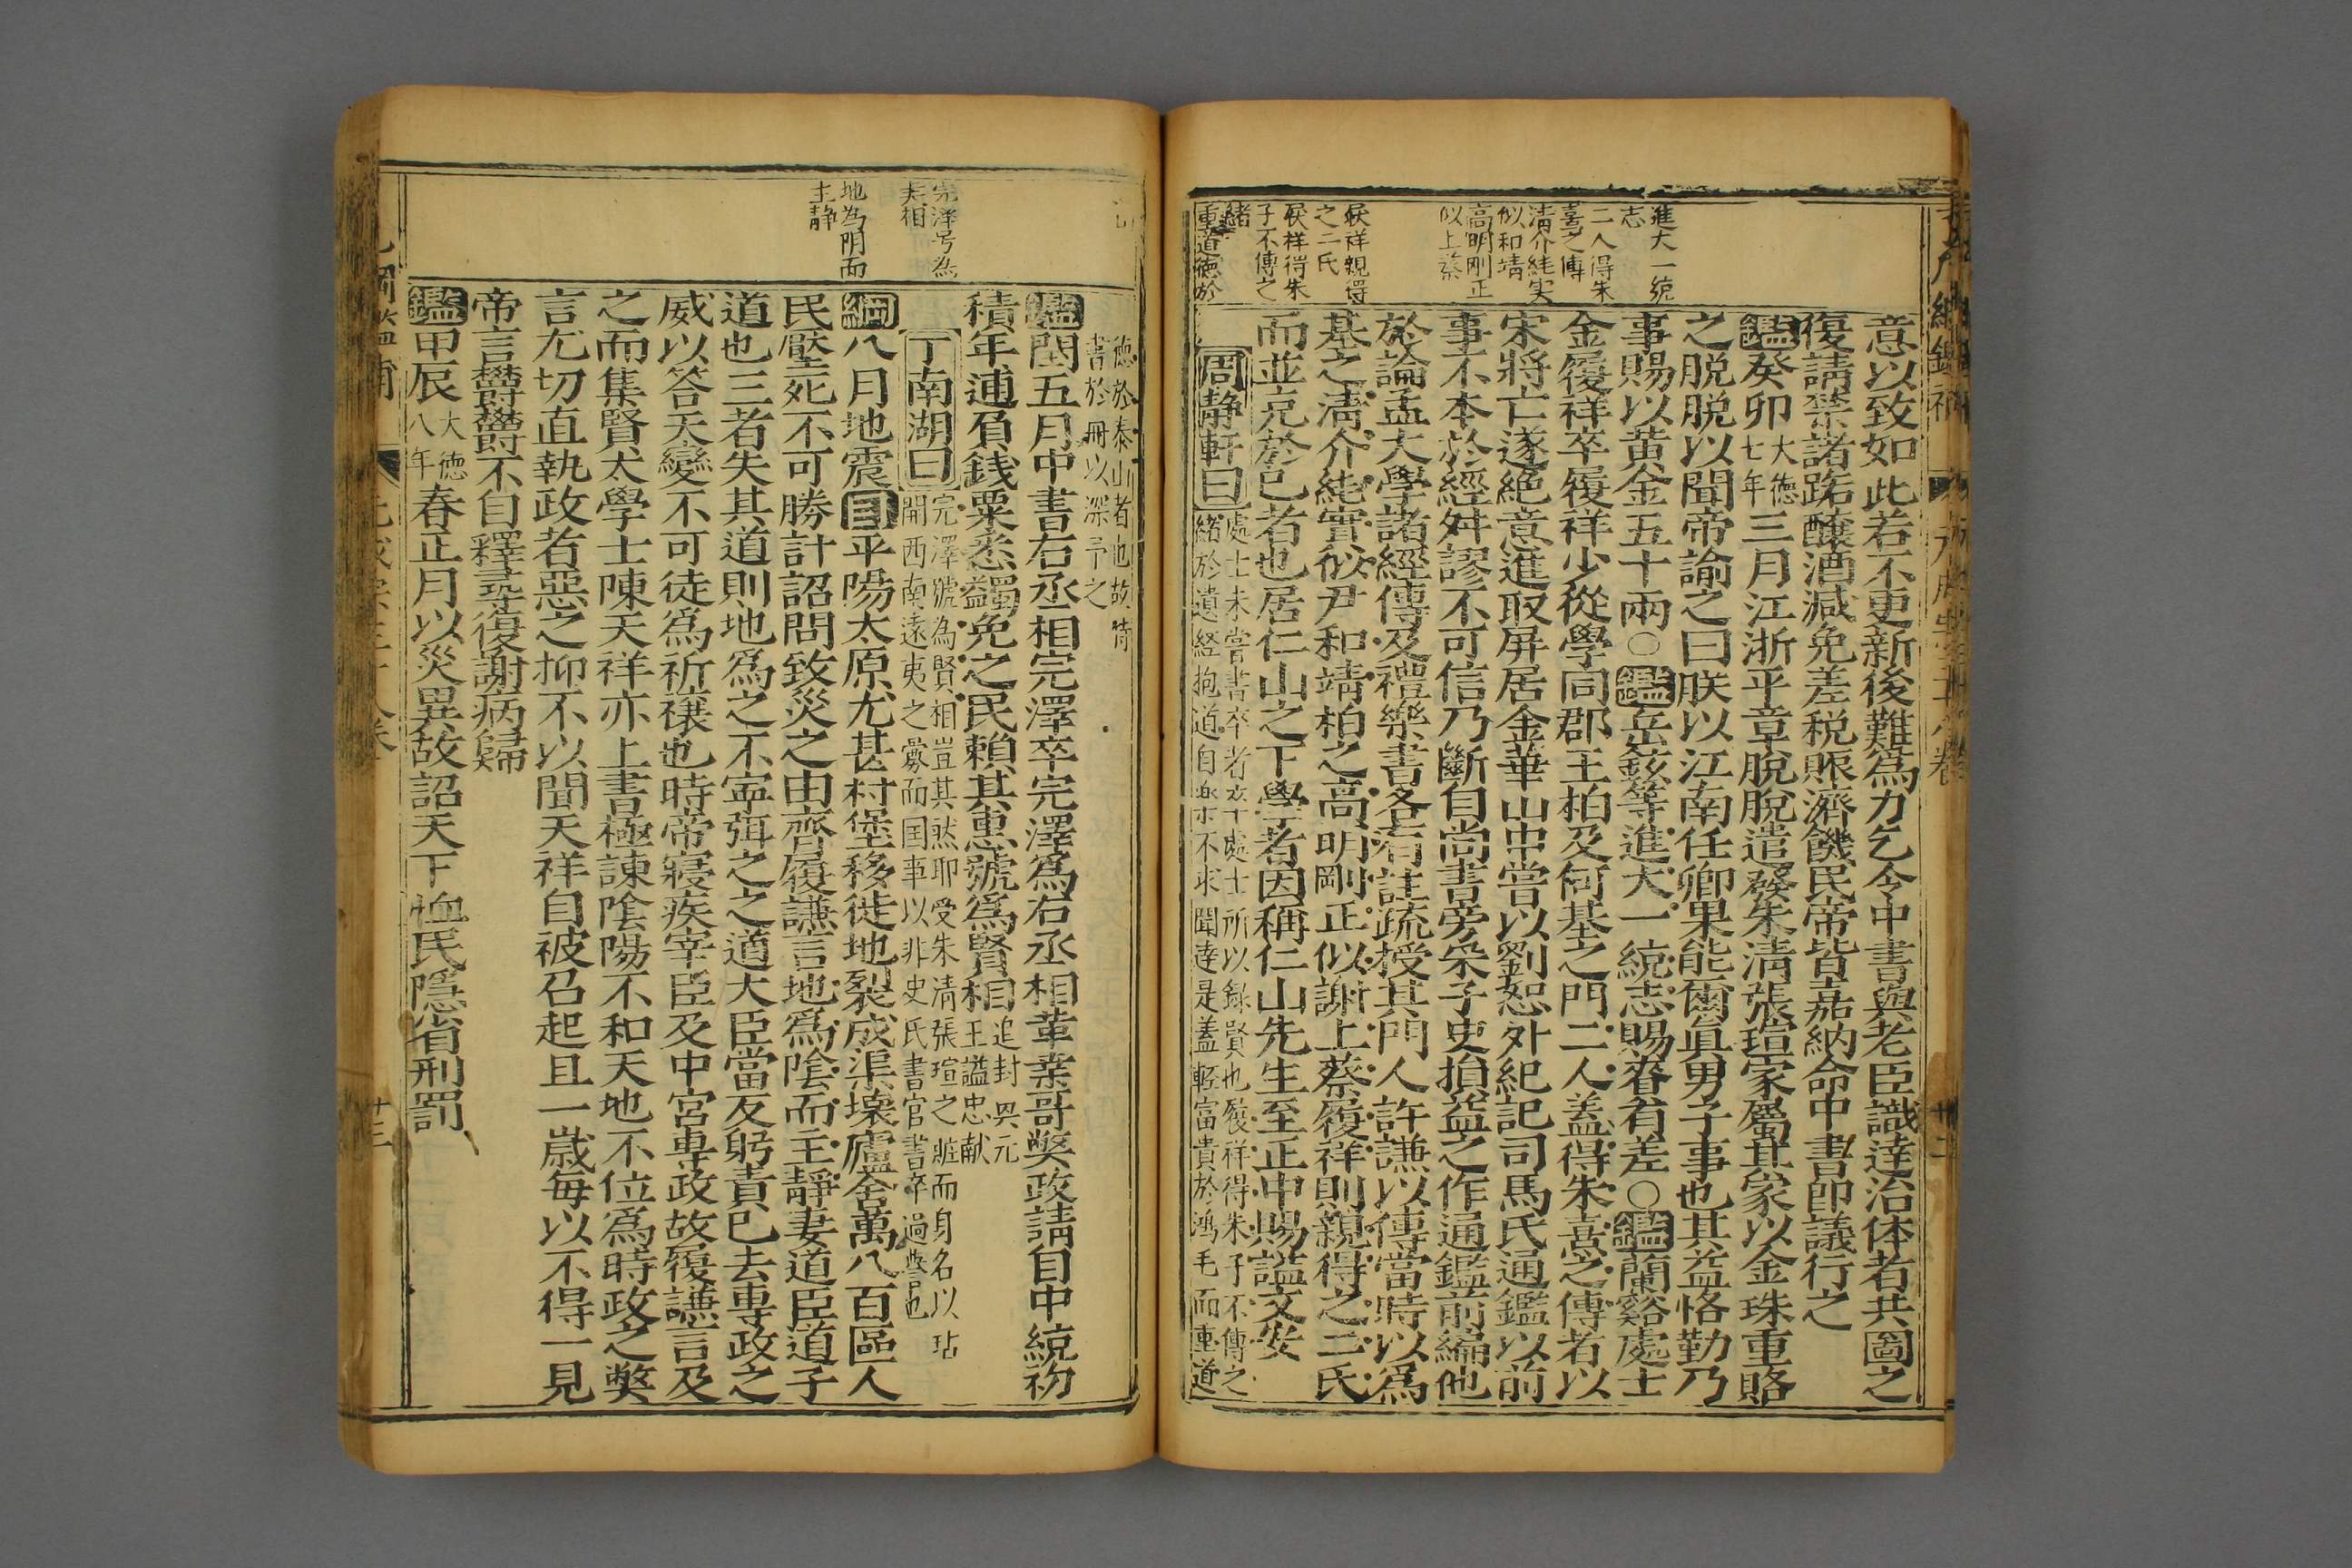 進大一統
志
二人得朱
熹之傳
清介純実
似和靖
高明剛正
似上蔡
履祥親得
之二氏
履祥得朱
子不傳之
緒
重道徳於
意以致如此若不更新後難爲力乞令中書與老臣識達治体者共圖之
復請禁諸路釀酒減免差税賑濟饑民帝皆嘉納命中書即議行之
鑑癸卯大徳七年三月江浙平章脫脫遣發朱清張瑄家屬其家以金珠重賂
之脫脫以聞帝諭之曰朕以江南任卿果能爾眞男子事也其益恪勤乃
事賜以黄金五十兩〇鑑岳鉉等進大一統志賜賚有差〇鑑蘭谿處士
金履祥卒履祥少從學同郡王柏及何基之門二人盖得朱熹之傳者以
宋將亡遂絶意進取屏居金華山中嘗以劉恕外紀記司馬氏通鑑以前
事不本於經舛謬不可信乃斷自尚書旁采子史損益之作通鑑前編他
於論孟大學諸經傳及禮樂書各有註疏授其門人許謙以傳當時以爲
基之清介純實似尹和靖柏之高明剛正似謝上蔡履祥則親得之二氏
而並充於已者也居仁山之下學者因稱仁山先生至正中賜謚文安
周靜軒曰處士未嘗書卒者
處士所以録賢也履祥得朱子不傳之
緒於遺經抱道自樂不求聞達是盖輕富貴於鴻毛而重道
完澤号為
賢相
地為陰而
主靜
徳於泰山者也故特
書於冊以深予之
鑑閏五月中書右丞相完澤卒完澤爲右丞相革桑哥獘政請自中統初
積年逋負錢粟悉蠲免之民賴其惠號爲賢相追封興元王謚忠献
丁南湖曰完澤號為賢相豈其然耶受朱清張瑄之賍而身名以玷
開西南遠夷之釁而国事以非史氏書官書卒過誉也
綱八月地震目平陽太原尤甚村堡移徙地裂成渠壊廬舍萬八百區人
民壓死不可勝計詔問致災之由齊履謙言地爲陰而主靜妻道臣道子
道也三者失其道則地爲之不寍弭之之道大臣當反躬責已去専政之
威以答天變不可徒爲祈禳也時帝寢疾宰臣及中宮専政故履謙言及
之而集賢大學士陳天祥亦上書極諫陰陽不和天地不位爲時政之獘
言尤切直執政者惡之抑不以聞天祥自被召起且一嵗每以不得一見
帝言欝欝不自釋尋復謝病歸
鑑甲辰大徳八年春正月以災異故詔天下恤民隱省刑罰